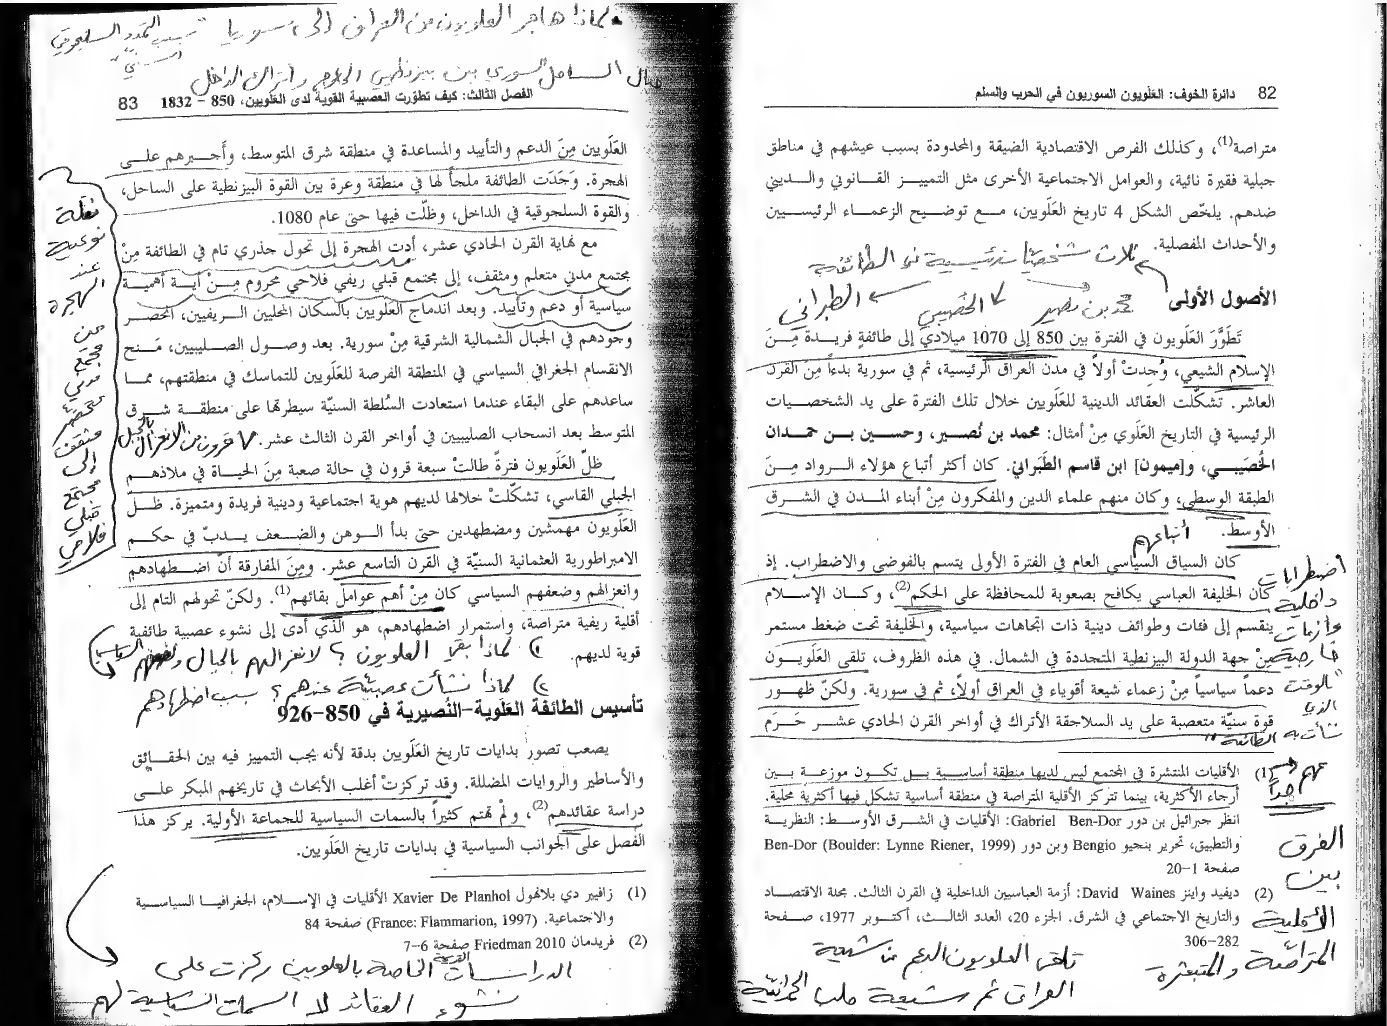 82 دائرة الخوف: العَلَويون السوريون في الحرب والسلم
متراصة(1)، وكذلك الفرص الاقتصادية الضيقة والمحدودة بسبب عيشهم في مناطق
جبلية فقيرة نائية، والعوامل الاجتماعية الأخرى مثل التمييز القانوني والديني
ضدهم. يلخّص الشكل 4 تاريخ العَلَويين، مع توضيح الزعماء الرئيسيين
والأحداث المفصلية.
ثلاث شخصيات رئيسية في الطائفة
الأصول الأولى
محمد بن نصير
الخصيبي
الطبراني
تَطوَّرَ العَلَويون في الفترة بين 850 إلى 1070 ميلادي إلى طائفةٍ فريدة مِنَ
الإسلام الشيعي، وُجِدتْ أولاً في مدن العراق الرئيسية، ثم في سورية بدءاً مِنَ القرن
العاشر. تشكّلت العقائد الدينية للعَلَويين خلال تلك الفترة على يد الشخصيات
الرئيسية في التاريخ العَلَوي مِنْ أمثال: محمد بن نُصير، وحسين بن حمدان
الخُصَيبي، و[ميمون] ابن قاسم الطَبَراني. كان أكثر أتباع هؤلاء الرواد مِنَ
الطبقة الوسطى، وكان منهم علماء الدين والمفكرون مِنْ أبناء المدن في الشرق
الأوسط.
أتباعهم
كان السياق السياسي العام في الفترة الأولى يتسم بالفوضى والاضطراب. إذ
كان الخليفة العباسي يكافح بصعوبة للمحافظة على الحكم(2)، وكان الإسلام
ينقسم إلى فئات وطوائف دينية ذات اتجاهات سياسية، والخليفة تحت ضغط مستمر
مِنْ جهة الدولة البيزنطية المتجددة في الشمال. في هذه الظروف، تلقى العَلَويون
دعماً سياسياً مِنْ زعماء شيعة أقوياء في العراق أولاً، ثم في سورية. ولكنّ ظهور
قوة سنيّة متعصبة على يد السلاجقة الأتراك في أواخر القرن الحادي عشر حَرَم
اضطرابات
داخلية
وأزمات
خارجية
"بالوقت
الذي
نشأت به الطائفة"
(1) الأقليات المنتشرة في المجتمع ليس لديها منطقة أساسية بل تكون موزعة بين
أرجاء الأكثرية، بينما تتركز الأقلية المتراصة في منطقة أساسية تشكل فيها أكثرية محلية.
انظر جبرائيل بن دور Gabriel Ben-Dor: الأقليات في الشرق الأوسط: النظرية
والتطبيق، تحرير بنجيو Bengio وبن دور Ben-Dor (Boulder: Lynne Riener, 1999)
صفحة 1-20
(2) ديفيد واينز David Waines: أزمة العباسيين الداخلية في القرن الثالث. مجلة الاقتصاد
والتاريخ الاجتماعي في الشرق. الجزء 20، العدد الثالث، أكتوبر 1977، صفحة
282-306
مهم
جداً
الفرق
بين
الأقلية
المتراصّة والمتبعثرة
تلقى العلويون الدعم من شيعة
العراق ثم شيعة حلب الحمدانية
• لماذا هاجر العلويون من العراق إلى سوريا "بسبب التمدد السلجوقي
جبال الساحل السوري بين بيزنطيي الخارج وأتراك الداخل
الفصل الثالث: كيف تطوّرت العصبية القوية لدى العَلَويين، 850 – 1832 83
العَلَويين مِنَ الدعم والتأييد والمساعدة في منطقة شرق المتوسط، وأجبرهم على
الهجرة. وَجَدَت الطائفة ملجأً لها في منطقة وعرة بين القوة البيزنطية على الساحل،
والقوة السلجوقية في الداخل، وظلّت فيها حتى عام 1080.
مع نهاية القرن الحادي عشر، أدت الهجرة إلى تحول جذري تام في الطائفة مِنْ
مجتمع مدني متعلم ومثقف، إلى مجتمع قبلي ريفي فلاحي محروم مِنْ أية أهمية
سياسية أو دعم وتأييد. وبعد اندماج العَلَويين بالسكان المحليين الريفيين، انحصر
وجودهم في الجبال الشمالية الشرقية مِنْ سورية. بعد وصول الصليبيين، مَنح
الانقسام الجغرافي السياسي في المنطقة الفرصة للعَلَويين للتماسك في منطقتهم، مما
ساعدهم على البقاء عندما استعادت السُلطة السنيّة سيطرتها على منطقة شرق
المتوسط بعد انسحاب الصليبيين في أواخر القرن الثالث عشر.
٧ قرون من الانعزال بالجبل
ظلّ العَلَويون فترةً طالتْ سبعة قرون في حالة صعبة مِنَ الحياة في ملاذهم
الجبلي القاسي، تشكّلتْ خلالها لديهم هوية اجتماعية ودينية فريدة ومتميزة. ظل
العَلَويون مهمشين ومضطهدين حتى بدأ الوهن والضعف يدبّ في حكم
الامبراطورية العثمانية السنيّة في القرن التاسع عشر. ومِنَ المفارقة أنّ اضطهادهم
وانعزالهم وضعفهم السياسي كان مِنْ أهم عوامل بقائهم(1). ولكنّ تحولهم التام إلى
أقلية ريفية متراصة، واستمرار اضطهادهم، هو الذي أدى إلى نشوء عصبية طائفية
قوية لديهم.
١) لماذا بقي العلويون؟ لانعزالهم بالجبال وضعفهم السياسي
٢) لماذا نشأت عصبية عندهم؟ بسبب اضطهادهم
نقلة
نوعية
عند
الهجرة
من
مجتمع
مدني
متحضر
مثقف
إلى
مجتمع
قبلي
فلاحي
تأسيس الطائفة العَلَوية-النُصيرية في 850-926
يصعب تصور بدايات تاريخ العَلَويين بدقة لأنه يجب التمييز فيه بين الحقائق
والأساطير والروايات المضللة. وقد تركزتْ أغلب الأبحاث في تاريخهم المبكر على
دراسة عقائدهم(2)، ولمْ تهتم كثيراً بالسمات السياسية للجماعة الأولية. يركز هذا
الفصل على الجوانب السياسية في بدايات تاريخ العَلَويين.
(1) زافيير دي بلانهول Xavier De Planhol الأقليات في الإسلام، الجغرافيا السياسية
والاجتماعية. (France: Flammarion, 1997) صفحة 84
(2) فريدمان Friedman 2010 صفحة 6-7
الدراسات القديمة الخاصة بالعلويين ركزت على
نشوء العقائد لا السمات السياسية لهم